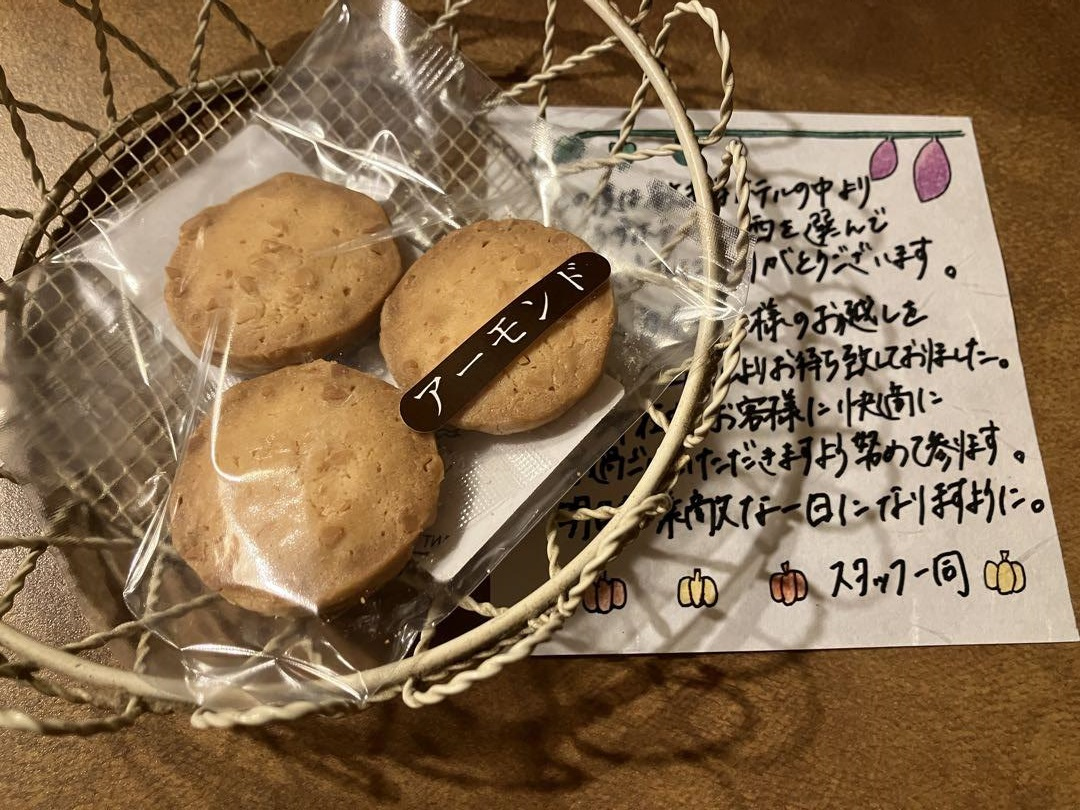 アーモンド
ホテルの中より
西を選んで
りがとうございます。
様のお越しを
よりお待ち致しておりました。
お客様に快適に
いただきますよう努めて参ります。
素敵な一日になりますように。
スタッフ一同